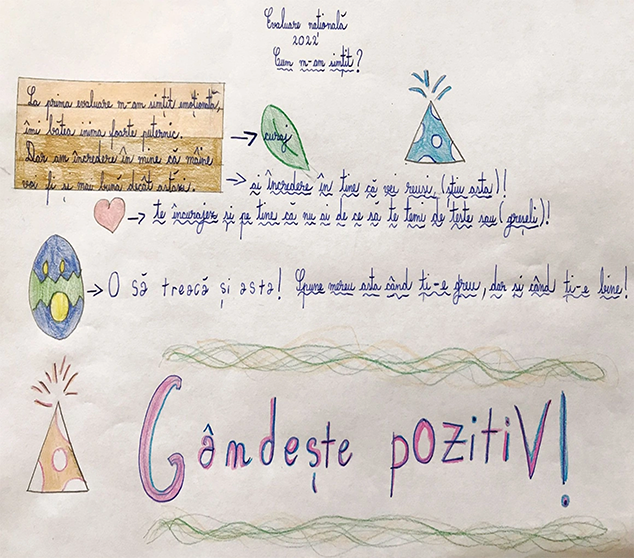 Evaluare națională
2022
Cum m-am simțit?
La prima evaluare m-am simțit emoționată,
îmi bătea inima foarte puternic.
Dar am încredere în mine că mâine
voi fi și mai bună decât astăzi.
curaj
ai încredere în tine că vei reuși, (știu asta)!
te încurajez și pe tine că nu ai de ce să te temi de teste sau (greșeli)!
O să treacă și asta! Spune mereu asta când ți-e greu, dar și când ți-e bine!
Gândește pozitiV!